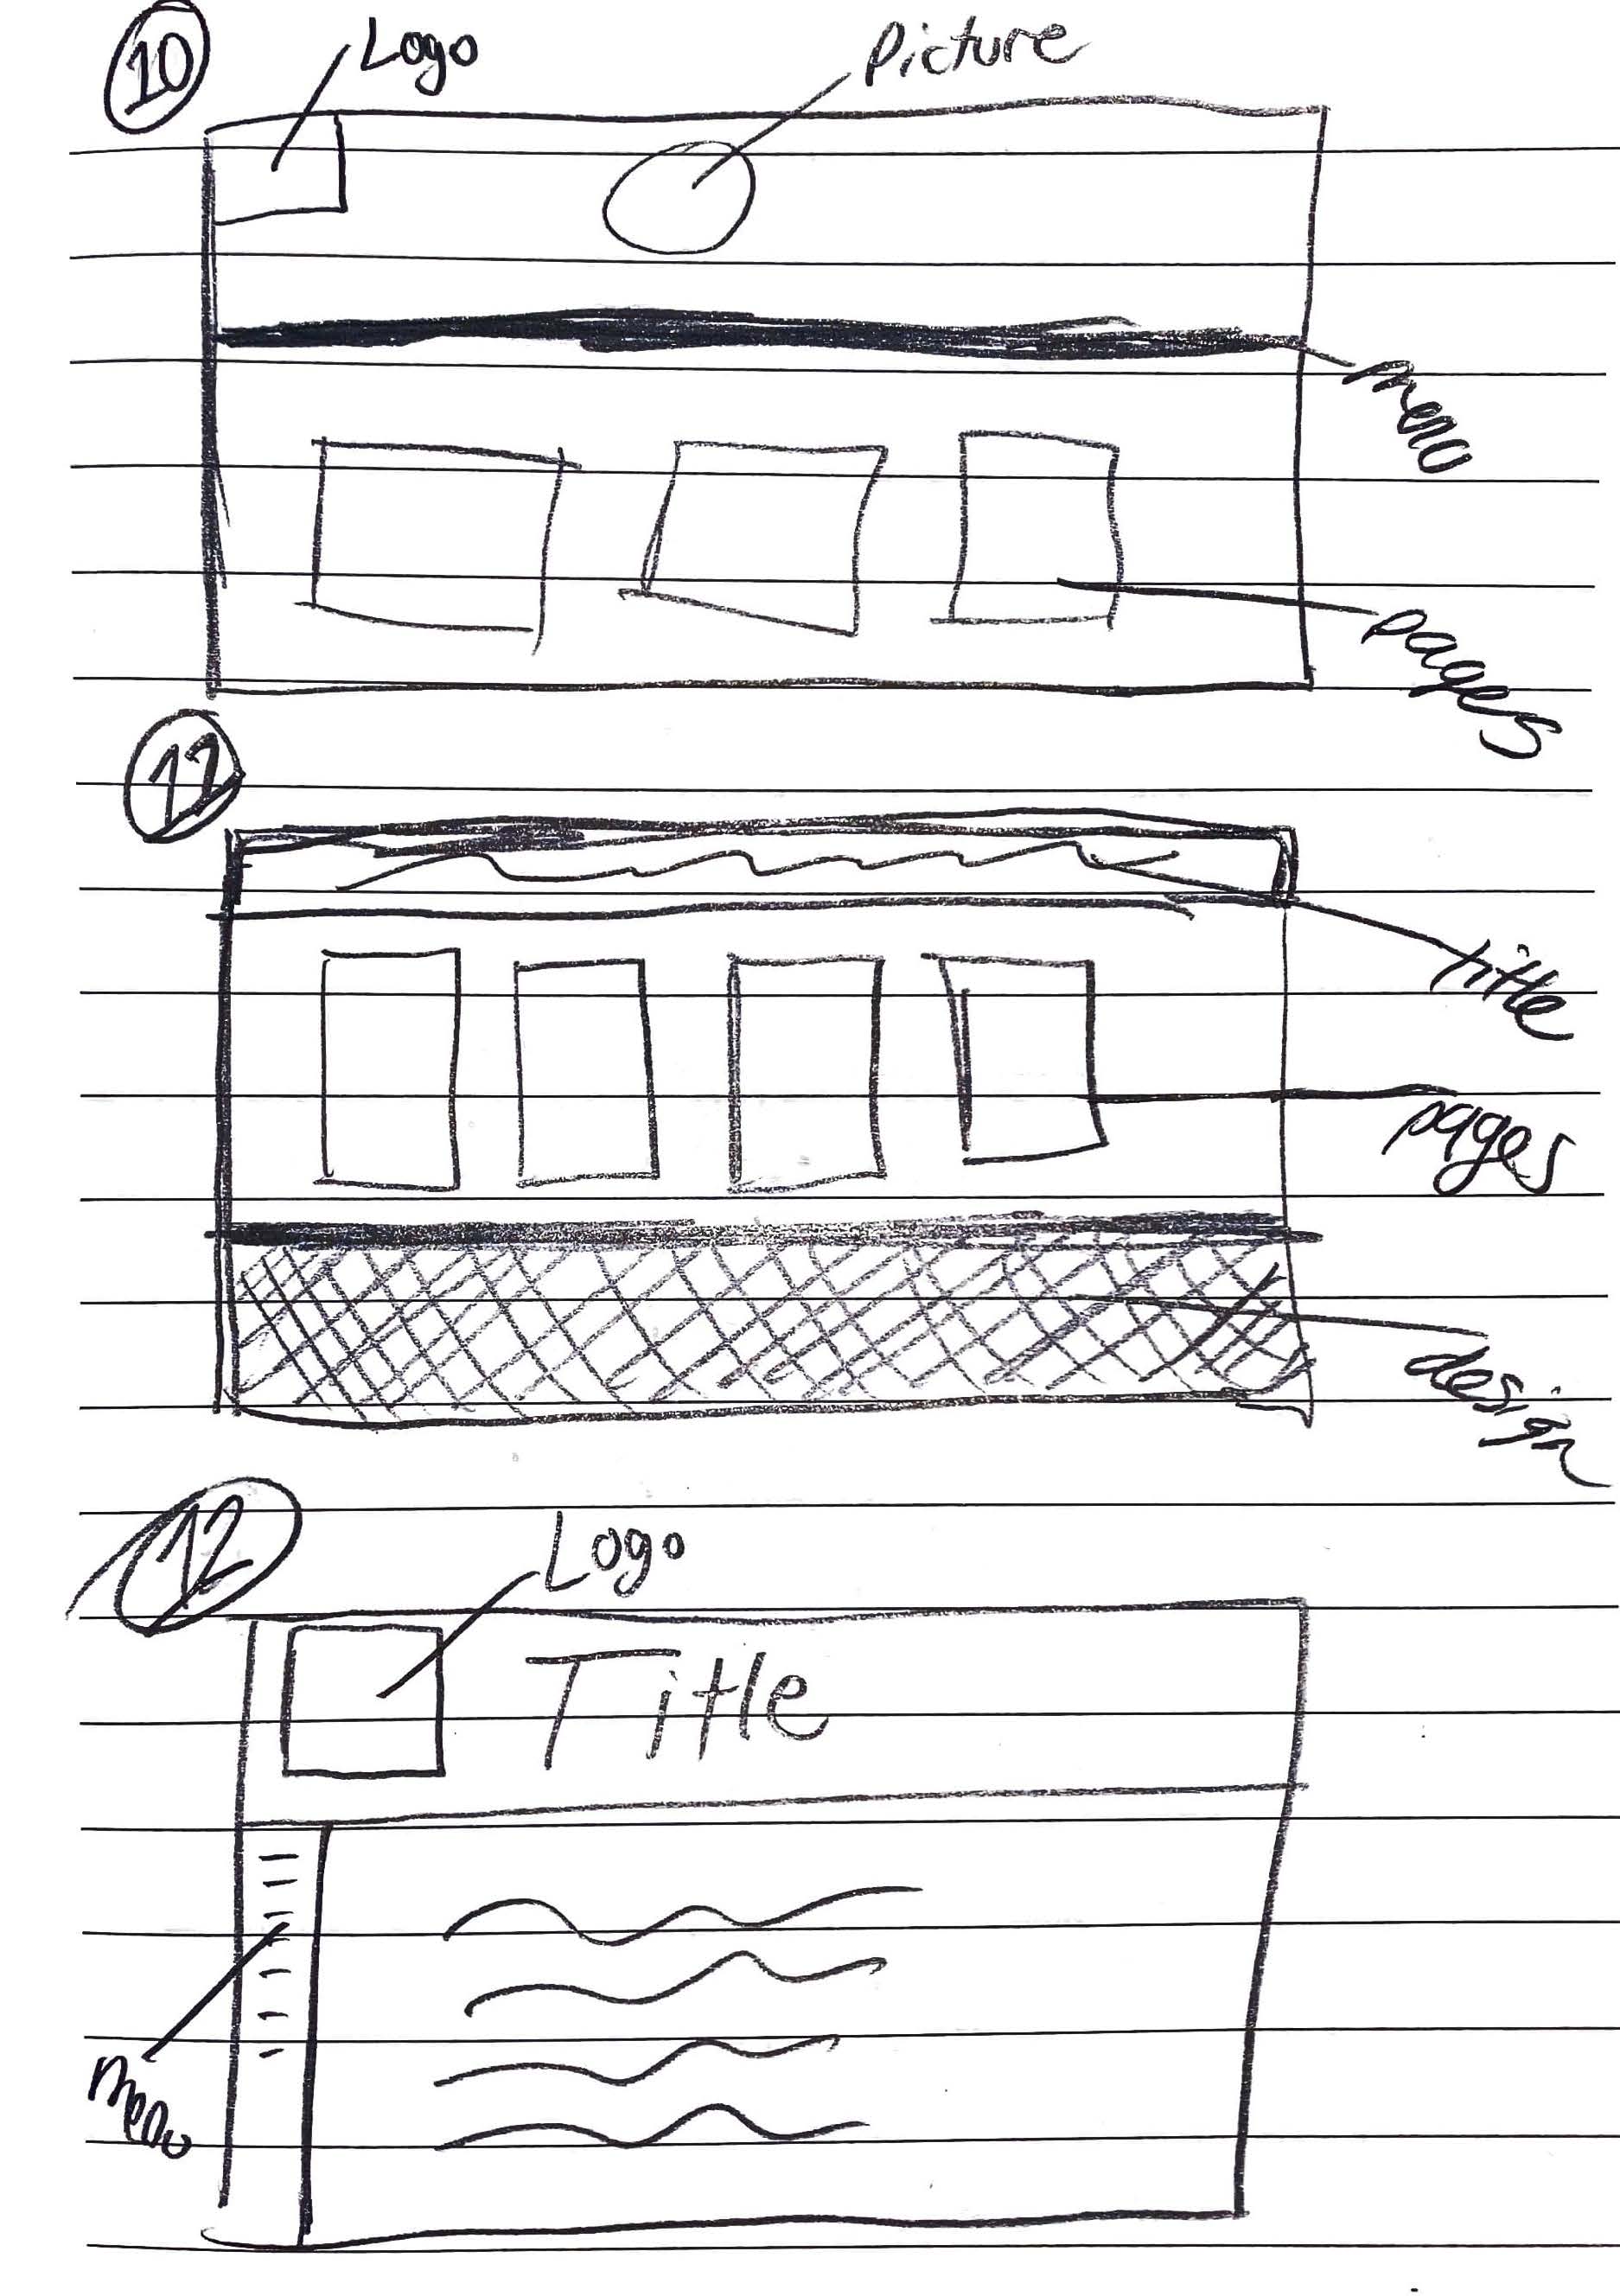 10
Logo
Picture
menu
pages
11
title
pages
design
12
Logo
Title
menu